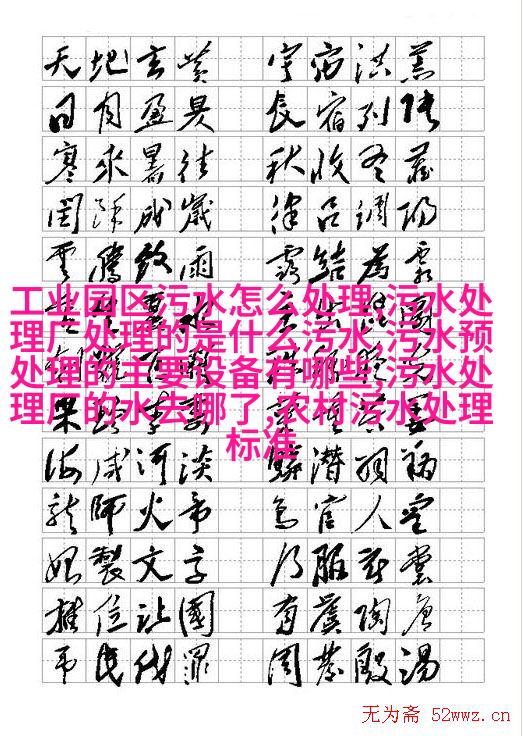 天地玄黄 宇宙洪荒
日月盈昃 辰宿列張
寒來暑往 秋收冬藏
閏餘成歲 律呂調陽
雲騰致雨 露結為霜
工业园区污水怎么处理,污水处
理厂处理的是什么污水,污水预
处理的主要设备有哪些,污水处
理厂的水去哪了,农村污水处理
标准
海咸河淡 鱗潛羽翔
龍師火帝 鳥官人皇
始製文字 乃服衣裳
推位讓國 有虞陶唐
弔民伐罪 周發殷湯
无为斋 52wwz.cn